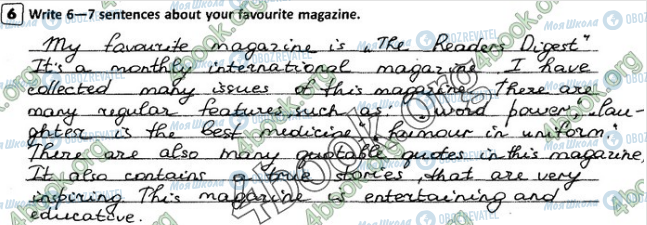 6 Write 6—7 sentences about your favourite magazine.
My favourite magazine is „The Readers Digest"
It's a monthly international magazine. I have
collected many issues of this magazine. There are
many regular features such as: "word power" "lau-
ghter is the best medicine", "humour in uniform.
There are also many quotable quotes in this magazine.
It also contains a true stories, that are very
inspiring. This magazine is entertaining and
educative.